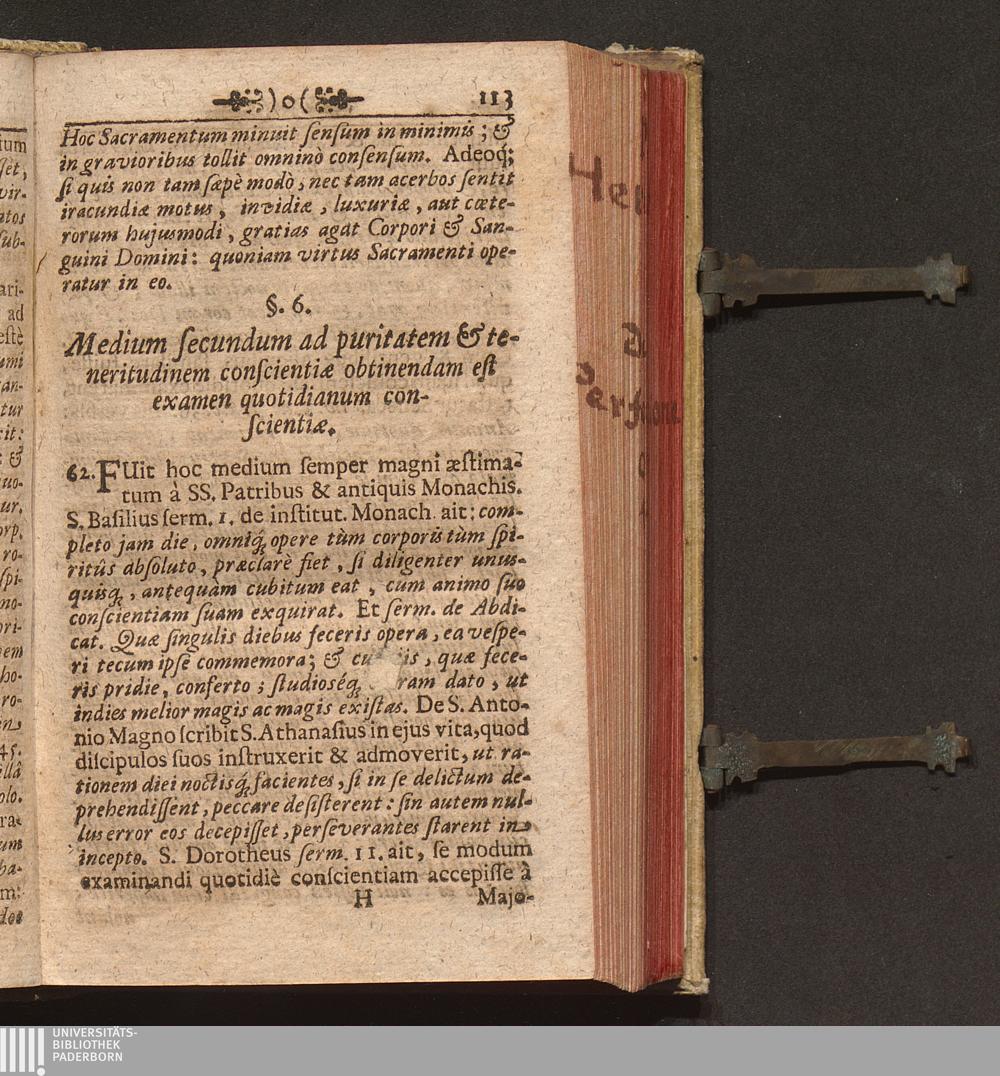 )o( 113
Hoc Sacramentum minuit ſenſum in minimis ; &
in gravioribus tollit omninò conſenſum. Adeoq;
ſi quis non tam ſæpè modò , nec tam acerbos ſentit
iracundiæ motus , invidiæ , luxuriæ , aut cœte-
rorum hujusmodi , gratias agat Corpori & San-
guini Domini : quoniam virtus Sacramenti ope-
ratur in eo.
§. 6.
Medium ſecundum ad puritatem & te-
neritudinem conſcientiæ obtinendam eſt
examen quotidianum con-
ſcientiæ.
62. FUit hoc medium ſemper magni æſtima-
tum à SS. Patribus & antiquis Monachis.
S. Baſilius ſerm. 1. de inſtitut. Monach. ait : com-
pleto jam die , omniq́; opere tùm corporis tùm ſpi-
ritûs abſoluto , præclarè fiet , ſi diligenter unus-
quisq́; , antequàm cubitum eat , cum animo ſuo
conſcientiam ſuam exquirat. Et ſerm. de Abdi-
cat. Quæ ſingulis diebus feceris opera , ea veſpe-
ri tecum ipſe commemora ; & quæ fece-
ris pridie , conferto ; ſtudioséq́; dato , ut
indies melior magis ac magis exiſtas. De S. Anto-
nio Magno ſcribit S. Athanaſius in ejus vita, quod
diſcipulos ſuos inſtruxerit & admoverit, ut ra-
tionem diei noctisq́; facientes , ſi in ſe delictum de-
prehendiſſent , peccare deſiſterent : ſin autem nul-
lus error eos decepiſſet , perſeverantes ſtarent in
incepto. S. Dorotheus ſerm. 11. ait , ſe modum
examinandi quotidiè conſcientiam accepiſſe à
H Majo-
UNIVERSITÄTS-
BIBLIOTHEK
PADERBORN